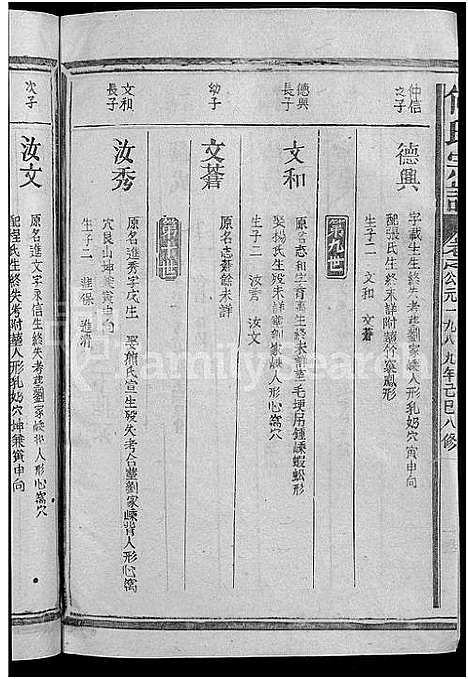 何氏宗譜
公元一九八九年己巳八修
仲信之子
德興
字載生生終失考葬劉家嵊人形乳奶穴寅申向
配張氏生終未詳附葬竹葉鳳形
生子二 文和 文蒼
第九世
德興長子
文和
原名志和字育萬生終未詳葬毛埂吊鍾嵊蝦蚣形
娶楊氏生歿未詳葬劉家嵊人形心窩穴
生子二 汝秀 汝文
幼子
文蒼
原名志蒼餘未詳
第十世
文和長子
汝秀
原名進秀字成生 娶熊氏宣生歿失考合塟劉家嵊背人形心窩
穴艮山坤兼寅申向
生子二 進保 進濟
次子
汝文
原名進文字永信生終失考葬劉家嵊人形心窩穴
配程氏生終失考附葬人形乳奶穴坤兼寅申向
FamilySearch